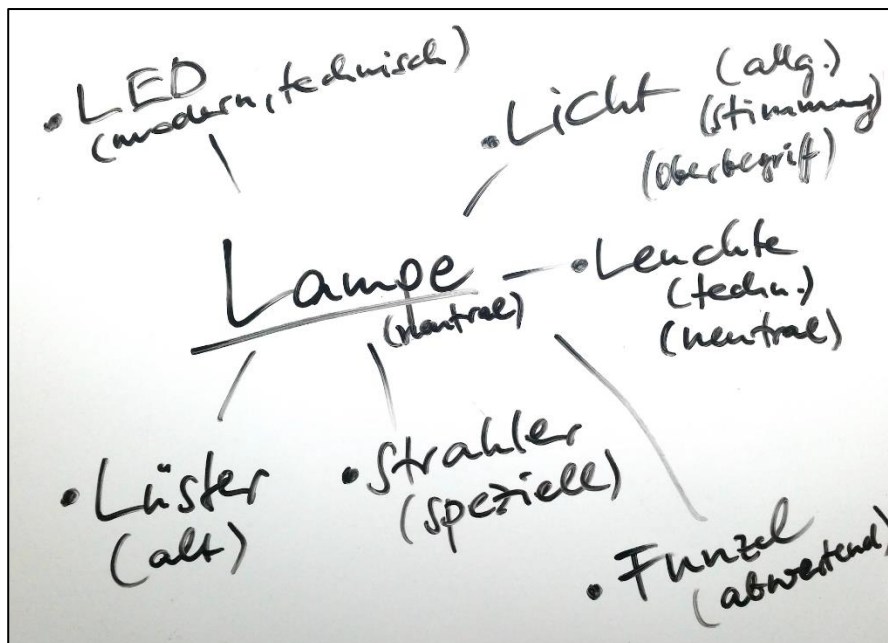 • LED
(modern, technisch)
• Licht (allg.)
(stimmung)
(oberbegriff)
Lampe
(neutral)
• Leuchte
(techn.)
(neutral)
• Lüster
(alt)
• Strahler
(speziell)
• Funzel
(abwertend)